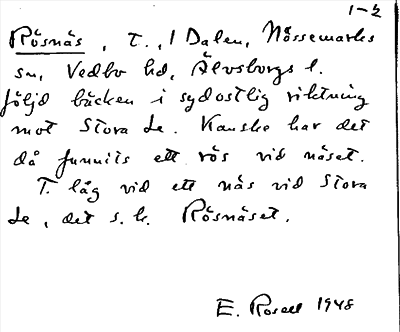 1-2
Rösnäs, T., I Dalen, Nössemarks
sn, Vedbo hd, Älvsborgs l.
följd bäcken i sydostlig riktning
mot Stora Le. Kanske har det
då funnits ett rös vid näset.
T. låg vid ett näs vid Stora
Le, det s.k. Rösnäset.
E. Rosell 1948